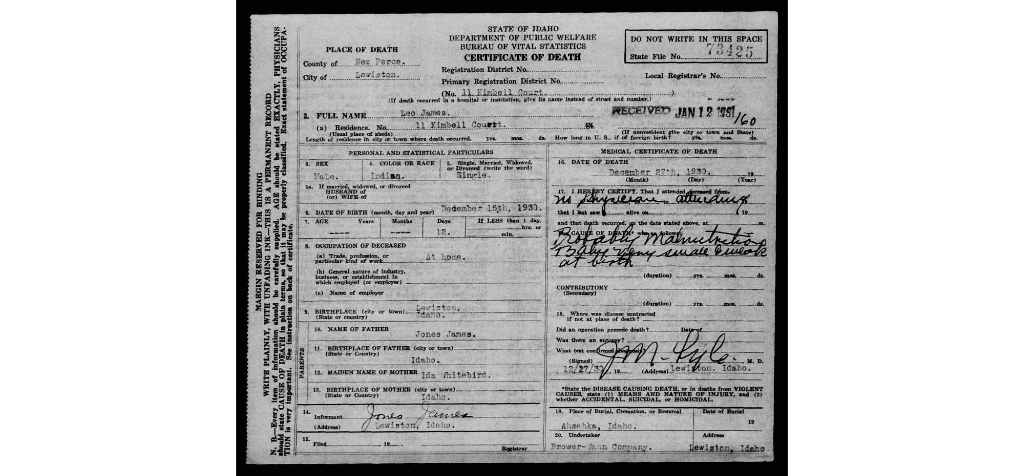 STATE OF IDAHO
DEPARTMENT OF PUBLIC WELFARE
BUREAU OF VITAL STATISTICS
CERTIFICATE OF DEATH
DO NOT WRITE IN THIS SPACE
State File No. 73425
PLACE OF DEATH
County of Nez Perce.
City of Lewiston.
Registration District No.
Primary Registration District No.
Local Registrar's No.
(No. 11 Kimbell Court. )
(If death occurred in a hospital or institution, give its name instead of street and number.)
RECEIVED JAN 12 1931/60
2. FULL NAME Leo James.
(a) Residence. No. 11 Kimbell Court. St.
(Usual place of abode) (If nonresident give city or town and State)
Length of residence in city or town where death occurred. yrs. mos. ds. How long in U. S., if of foreign birth? yrs. mos. ds.
PERSONAL AND STATISTICAL PARTICULARS
3. SEX Male.
4. COLOR OR RACE Indian.
5. Single, Married, Widowed, or Divorced (write the word) Single.
5a. If married, widowed, or divorced
HUSBAND of
(or) WIFE of
6. DATE OF BIRTH (month, day and year) December 15th, 1930.
7. AGE Years Months Days If LESS than 1 day,
---- ---- 12. hrs. or min.
8. OCCUPATION OF DECEASED
(a) Trade, profession, or particular kind of work At home.
(b) General nature of industry, business, or establishment in which employed (or employer)
(c) Name of employer
9. BIRTHPLACE (city or town) Lewiston,
(State or country) Idaho.
PARENTS
10. NAME OF FATHER Jones James.
11. BIRTHPLACE OF FATHER (city or town)
(State or Country) Idaho.
12. MAIDEN NAME OF MOTHER Ida Whitebird.
13. BIRTHPLACE OF MOTHER (city or town)
(State or Country) Idaho.
14. Informant Jones James
(Address) Lewiston, Idaho.
15. Filed 19 Registrar
MEDICAL CERTIFICATE OF DEATH
16. DATE OF DEATH
December 27th, 1930. 19
(Month) (Day) (Year)
17. I HEREBY CERTIFY, That I attended deceased from
no physician attending
that I last saw alive on 19
and that death occurred, on the date stated above, at m.
The CAUSE OF DEATH* was as follows:
Probably Malnutrition
Baby very small & weak
at birth
(duration) yrs. mos. ds.
CONTRIBUTORY
(Secondary)
(duration) yrs. mos. ds.
18. Where was disease contracted
if not at place of death?
Did an operation precede death? Date of
Was there an autopsy?
What test confirmed diagnosis?
(Signed) J M Lyle. M. D.
12/27/30 19 (Address) Lewiston. Idaho.
*State the DISEASE CAUSING DEATH, or in deaths from VIOLENT
CAUSES, state (1) MEANS AND NATURE OF INJURY, and (2)
whether ACCIDENTAL, SUICIDAL, or HOMICIDAL.
19. Place of Burial, Cremation, or Removal Date of Burial
Ahsahka, Idaho. 19
20. Undertaker Address
Brower-Wann Company. Lewiston, Idaho
MARGIN RESERVED FOR BINDING
WRITE PLAINLY, WITH UNFADING INK—THIS IS A PERMANENT RECORD
N. B.—Every item of information should be carefully supplied. AGE should be stated EXACTLY. PHYSICIANS
should state CAUSE OF DEATH in plain terms, so that it may be properly classified. Exact statement of OCCUPA-
TION is very important. See instruction on back of certificate.